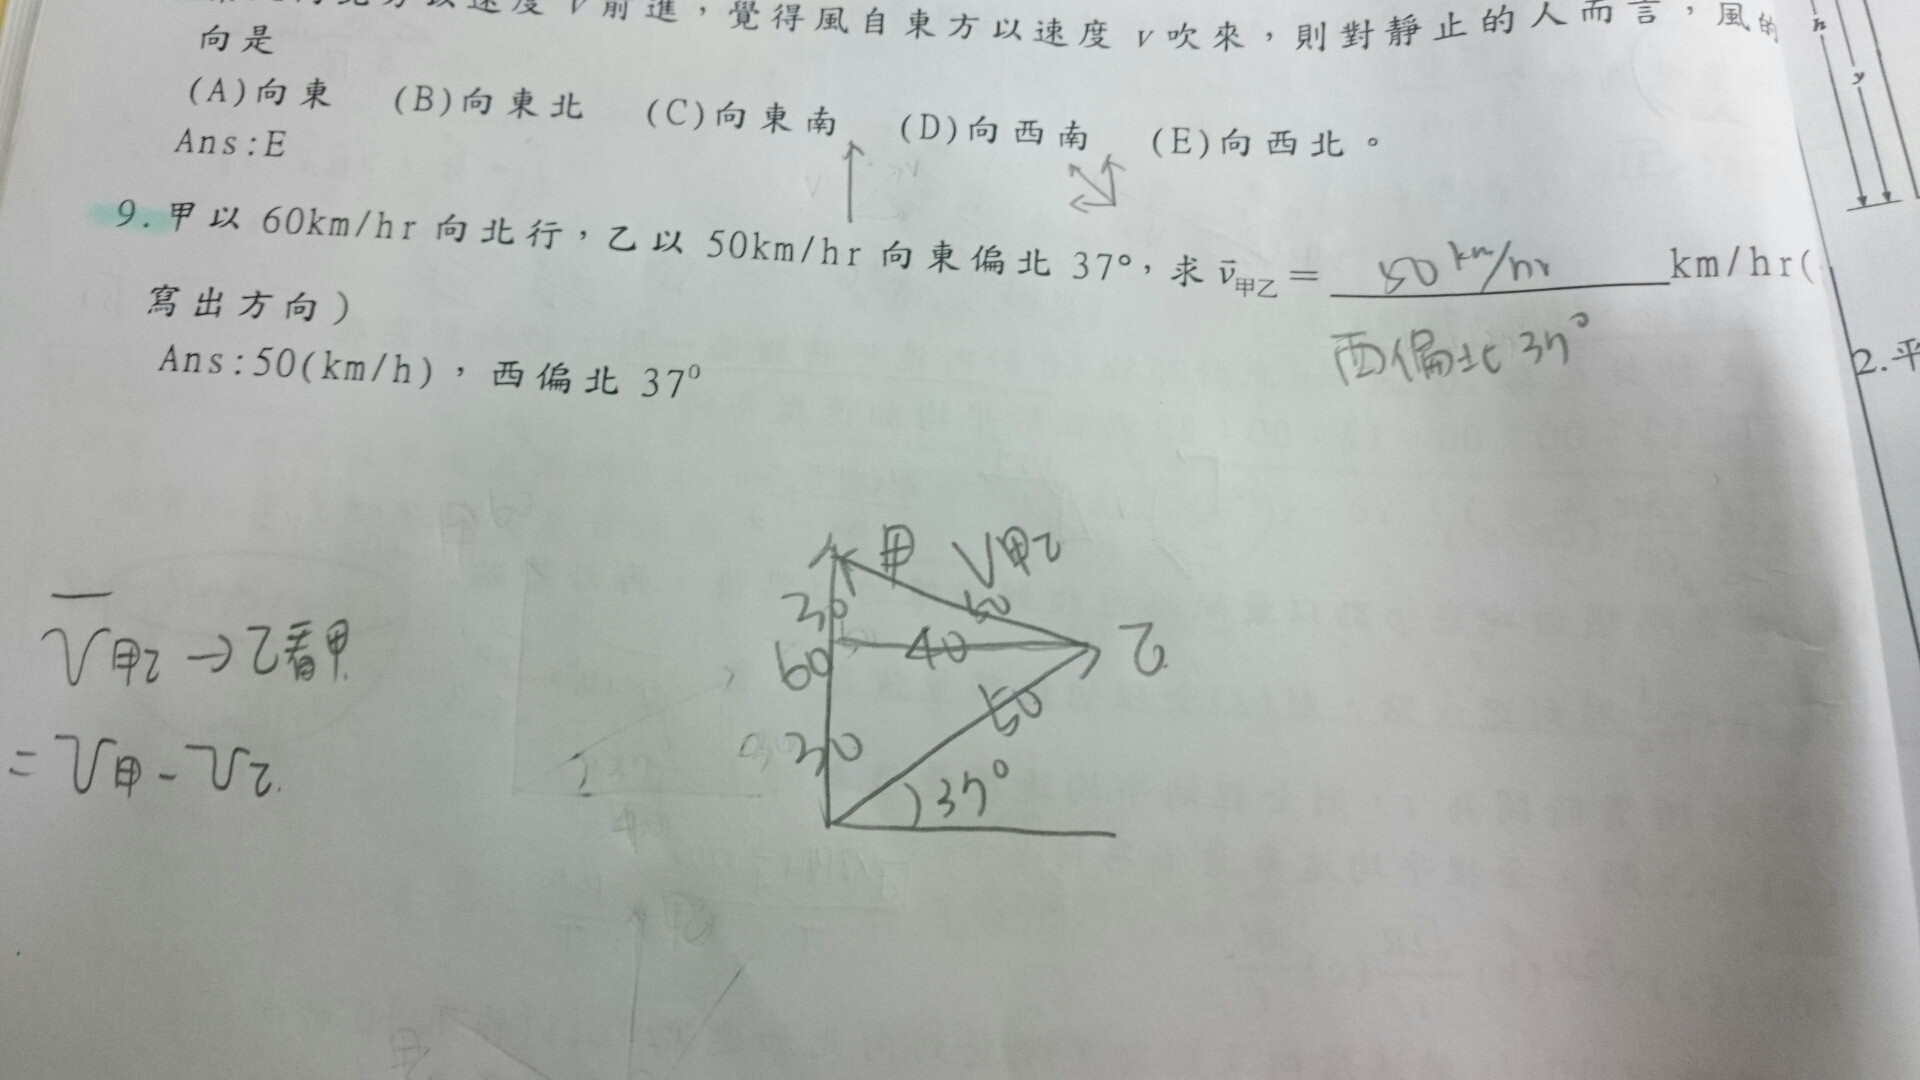 方以速度 v 前進，覺得風自東方以速度 v 吹來，則對靜止的人而言，風的
向是
(A)向東 (B)向東北 (C)向東南 (D)向西南 (E)向西北。
Ans:E
9.甲以 60km/hr 向北行，乙以 50km/hr 向東偏北 37°，求 v̄甲乙 = 50 km/hr km/hr(
寫出方向)
西偏北 37°
Ans:50(km/h)，西偏北 37⁰
甲 V甲乙
30 50
V̄甲乙 → 乙看甲
60 40 乙
50
= V甲 - V乙
30
37°
h
y
2.平